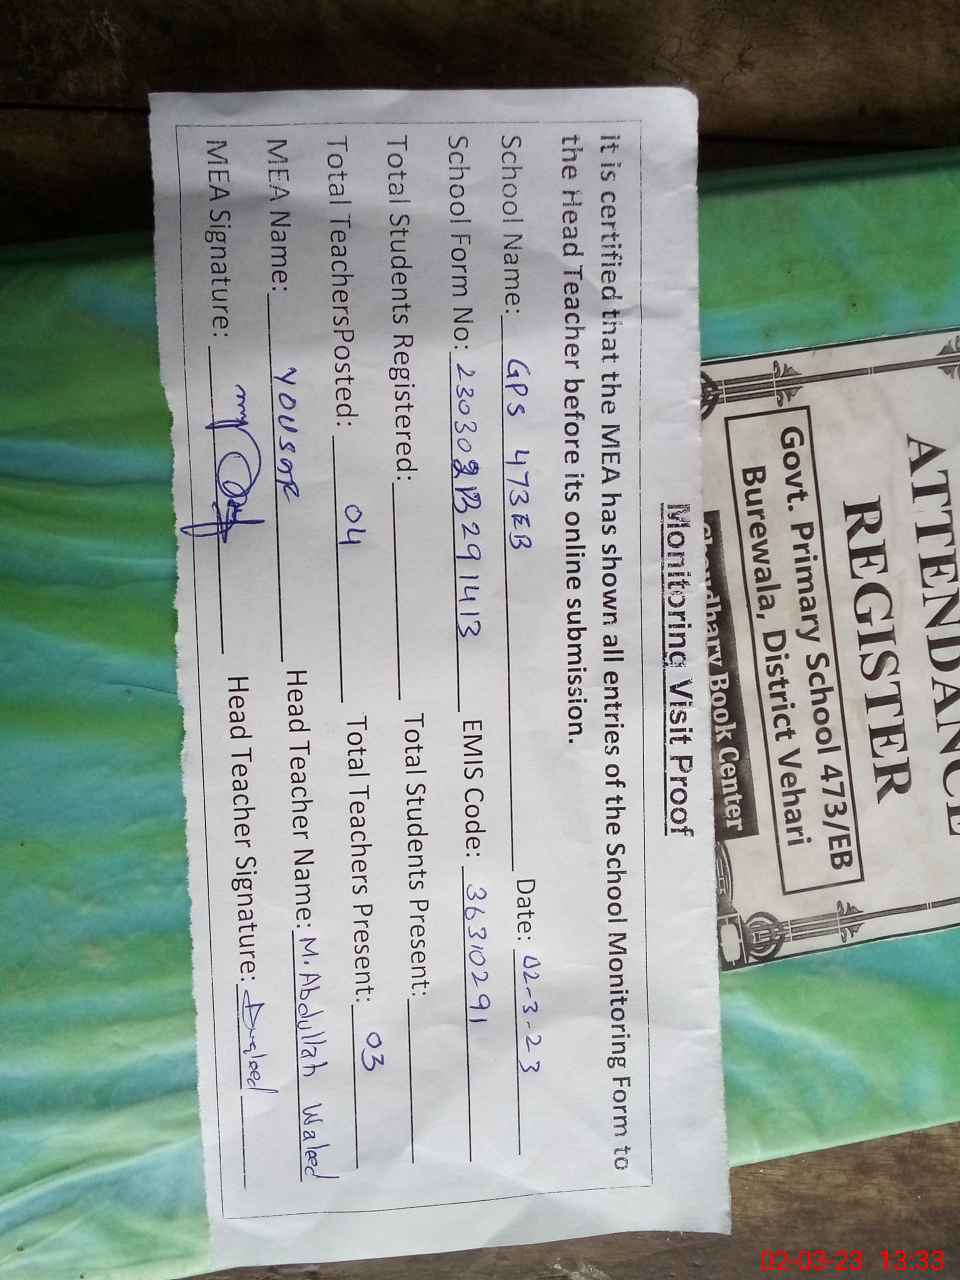 ATTENDANCE
REGISTER
Govt. Primary School 473/EB
Burewala, District Vehari
Chowdhary Book Center
Monitoring Visit Proof
it is certified that the MEA has shown all entries of the School Monitoring Form to
the Head Teacher before its online submission.
School Name: GPS 473EB Date: 02-3-23
School Form No: EMIS Code: 36310291
Total Students Registered: Total Students Present:
Total TeachersPosted: 04 Total Teachers Present: 03
MEA Name: Head Teacher Name: M. Abdullah Waleed
MEA Signature: Head Teacher Signature:
02-03-23 13:33